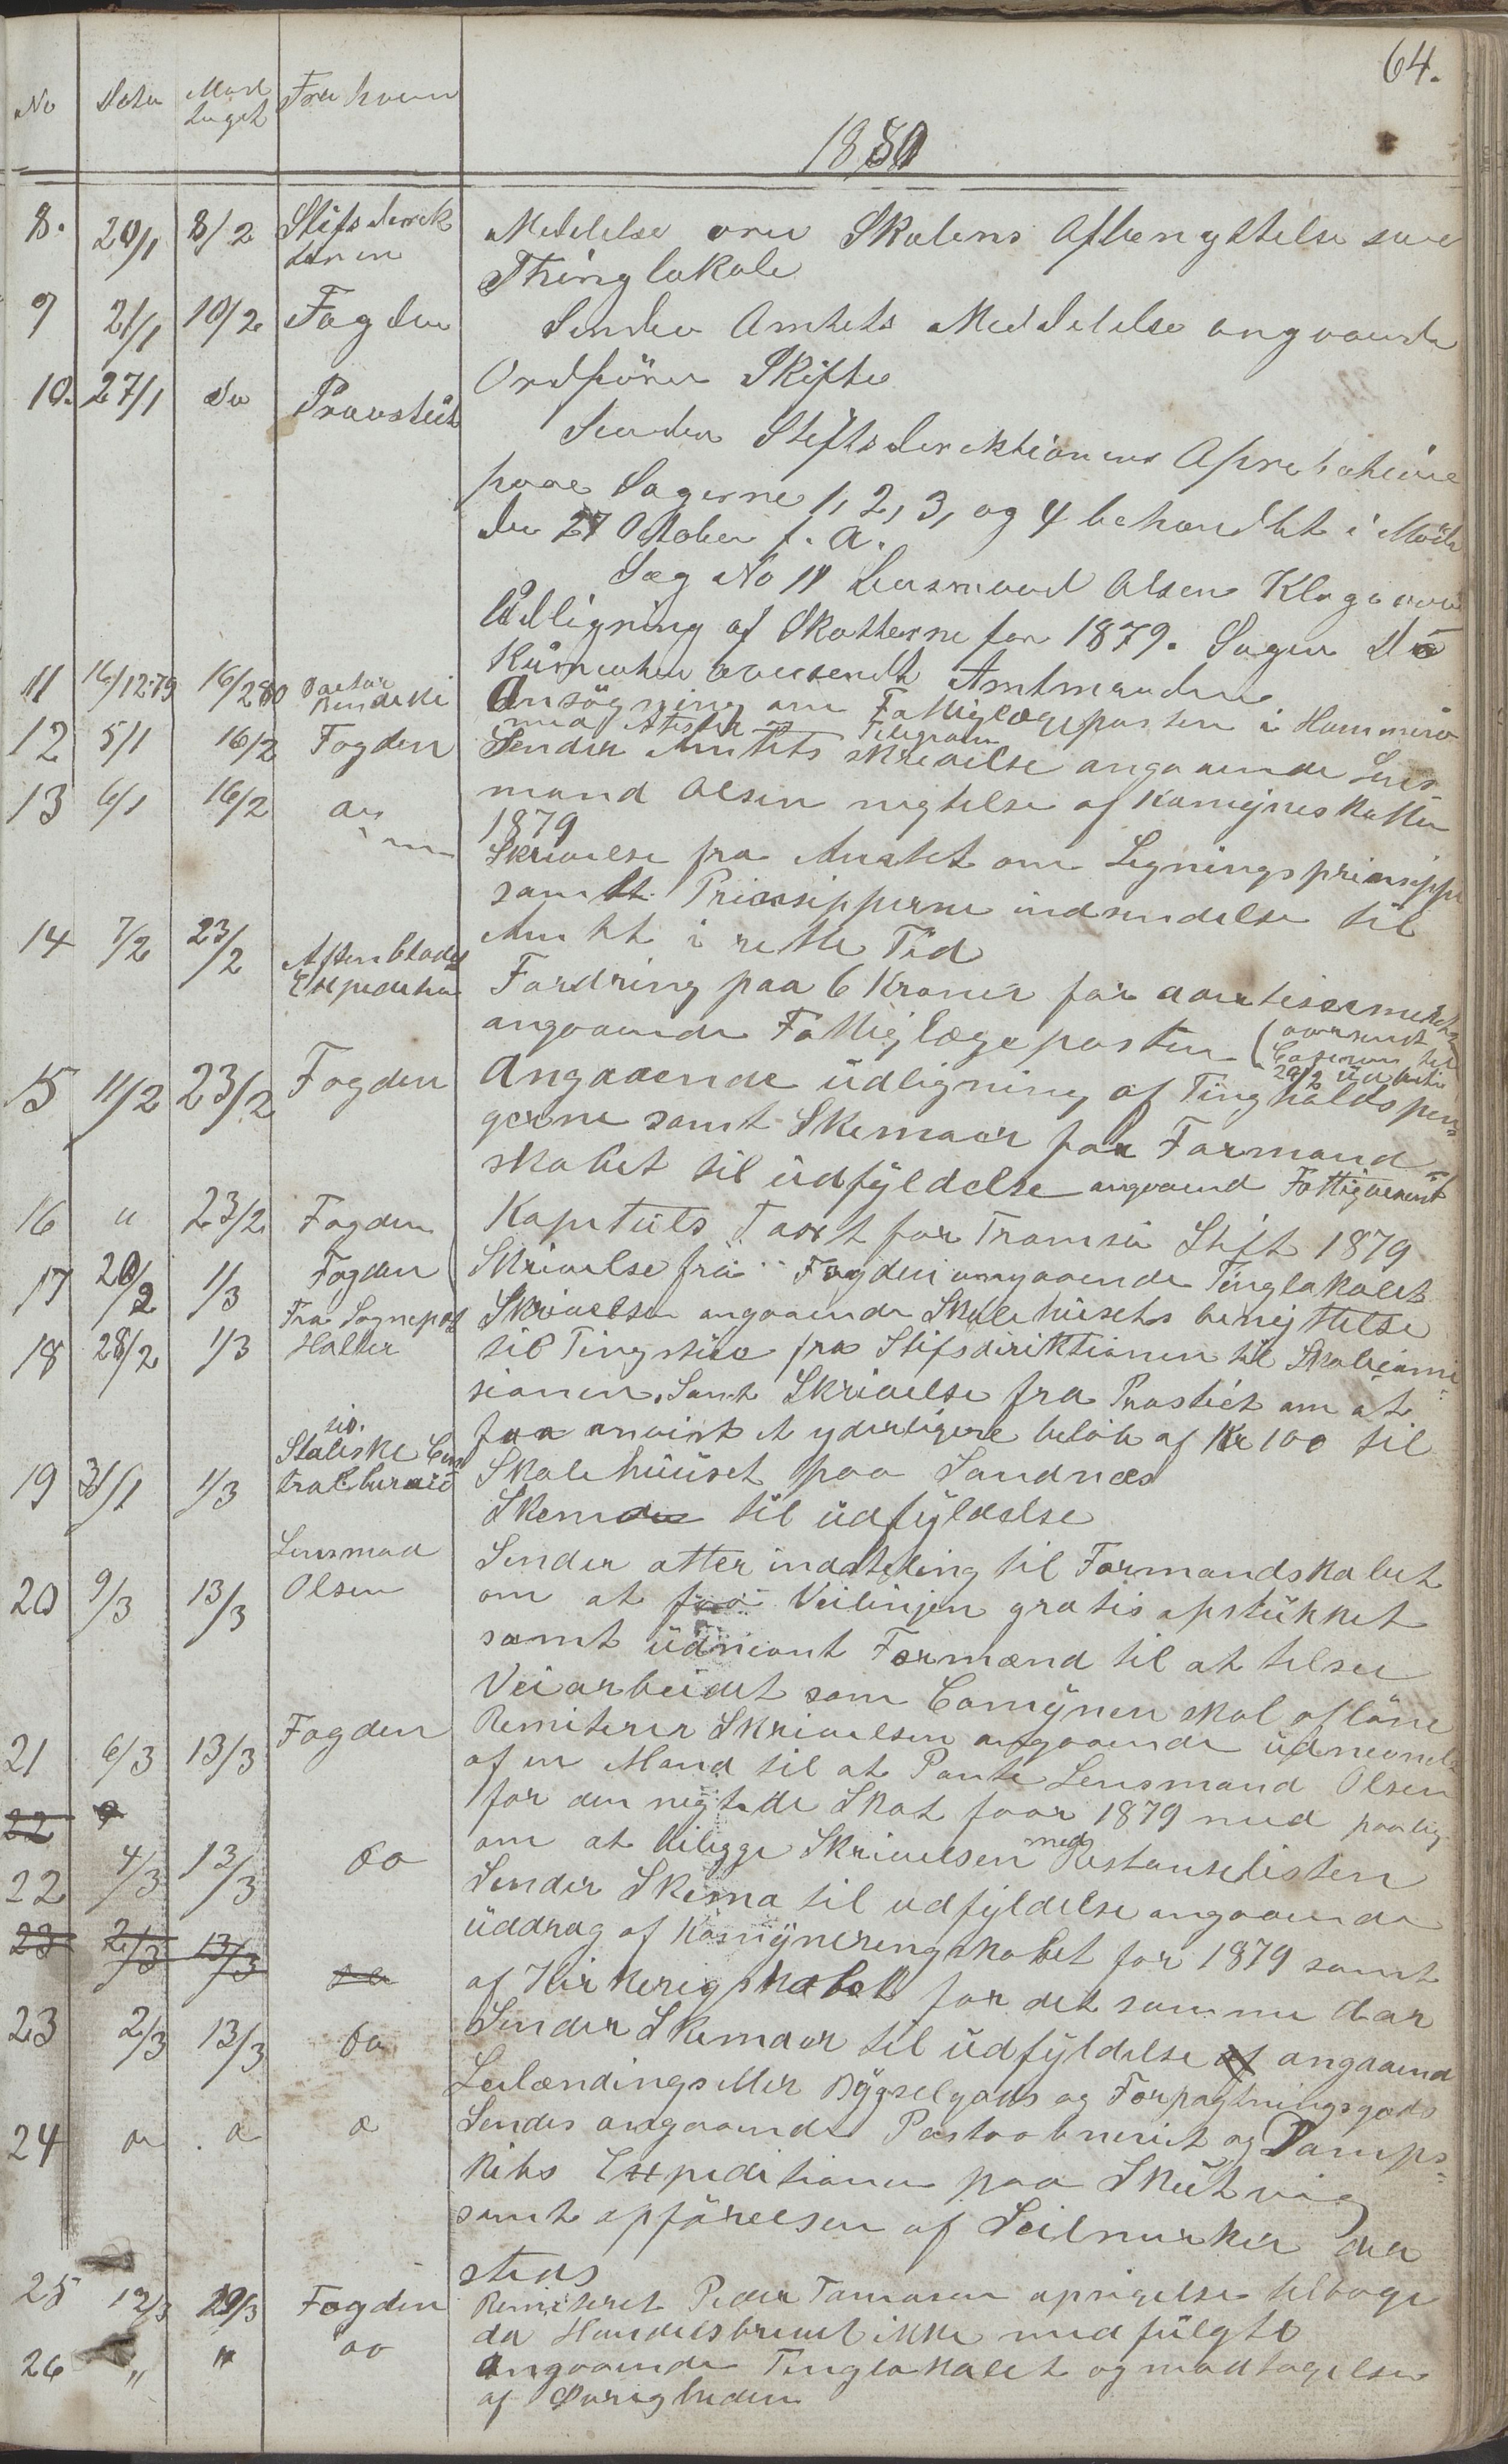 64.
No Datu Mod Fra hvem
taget
1880
8. 20/1 8/2 Stifsdirek Meddelse om Skolens Aftbenyttelse som
tionen Thinglokale
9 21/1 10/2 Fogden Sender Amtets Meddelelse angaaende
Ordförer Skifte
10. 27/1 do Provstiet Sender Stiftsdirektionens Aprobation
paa Sagerne 1, 2, 3, og 4 behandlet i Möde
den 27 Oktober f. a.
Sag No 11 Lensmand Olsens Klage over
Udligning af Skatterne for 1879. Sagens Do
kumenter oversendt Amtmanden
11 16/12-79 16/2 80 Doctor Ansögning om Fattiglægeposten i Hammerö
Bendeke med Atester Telegram
12 5/1 16/2 Fogden Sender Amtets skrivelse angaaende Lens-
mand Olsen negtelse af Komyneskatten
1879
13 6/1 16/2 Skrivelse fra Amtet om Ligningsprinsippe
samt Prinsipperne indsendelse til
Amtet i rette Tid
14 7/2 23/2 Aftenbladets Fordring paa 6 Kroner for avertisementet
Expedition angaaende Fattiglægeposten (oversendt
til
29/2
15 11/2 23/2 Fogden Angaaende üdligning af Tingholdspen
gerne samt Skemaer for Formand-
skabet til üdfyldelse angaaend Fattigvesent
16 " 23/2 Fogden Kapituls Taxt for Tromsö Stift 1879
17 20/2 1/3 Fogden Skrivelse fra Fogden angaaende Tinglokalet
18 28/2 1/3 Fra Sognepst Skrivelsen angaaende Skolehüsets benyttelse
Halter til Tingstüe fra Stifsdiriktionen til Skolecomi
sionen. Samt Skrivelse fra Prostiet om at
faa anvist et yderligere belöb af Kr 100 til
Skolehüüset paa Sandnes
19 31/1 1/3 Statiske Cen
tralburaü Skema til üdfyldelse
20 9/3 13/3 Lensmad Sender atter indstilling til Formandskabet
Olsen om at faa Veilinjen gratis opstükket
samt üdnevnt Formænd til at tilsee
Veiarbeidet som Comynen skal aflöne
21 6/3 13/3 Fogden Remiterer Skrivelsen angaaende üdnevnels
af en Mand til at Pante Lensmand Olsen
for den negtede Skat foor 1879 med paalæg
om at bilegge Skrivelsen med Restanselisten
22
22 4/3 13/3 do Sender Skema til udfyldelse angaaende
üddrag af Komyneregnskabet for 1879 samt
af Kirkeregnskabet for det samme Aar
23 2/3 13/3 do
23 2/3 13/3 do Sender Skemaer til üdfyldelse af angaaend
Leilændings eller Bygselgods og Forpagtningsgods
24 Sendes angaaende Postaabneriet og Damps=
kibs Expeditionen paa Skütvig
samt opförelsen af Seilmerker der
steds
25 12/3 29/3 Fogden Remiteret Peder Tomasen opsigelse tilbage
da Handelsbrevet ikke medfülgte
26 " " do Angaaende Tinglokalet og modtagelse
af Övrigheden